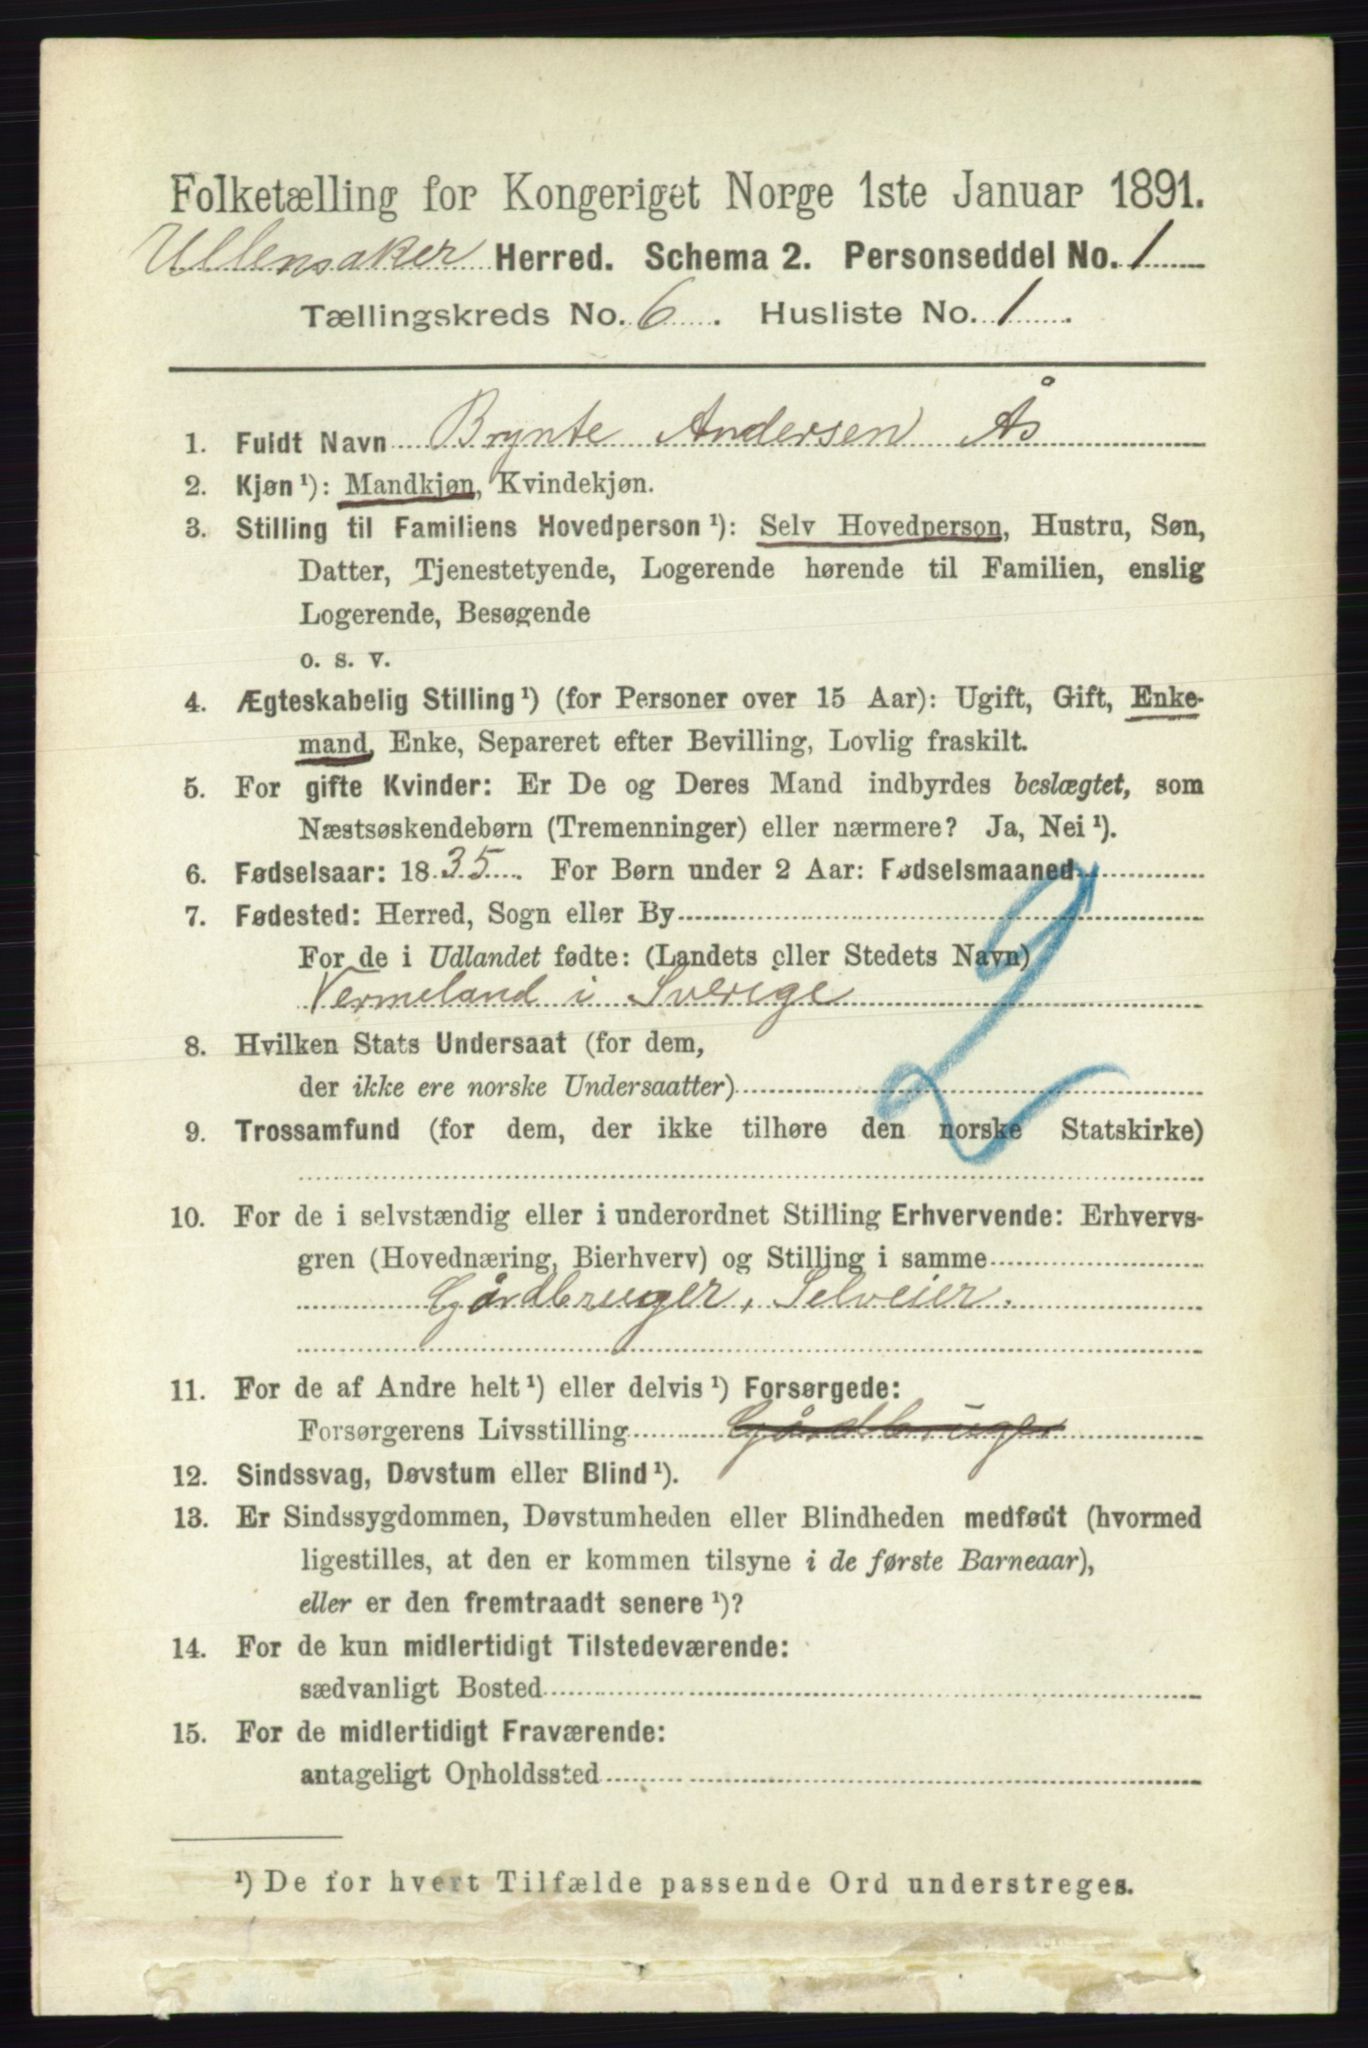 Folketælling for Kongeriget Norge 1ste Januar 1891.
Ullensaker Herred. Schema 2. Personseddel No. 1
Tællingskreds No. 6. Husliste No. 1.
1. Fuldt Navn Brynte Andersen Ås
2. Kjøn ¹): Mandkjøn, Kvindekjøn.
3. Stilling til Familiens Hovedperson ¹): Selv Hovedperson, Hustru, Søn,
Datter, Tjenestetyende, Logerende hørende til Familien, enslig
Logerende, Besøgende
o. s. v.
4. Ægteskabelig Stilling ¹) (for Personer over 15 Aar): Ugift, Gift, Enke-
mand, Enke, Separeret efter Bevilling, Lovlig fraskilt.
5. For gifte Kvinder: Er De og Deres Mand indbyrdes beslægtet, som
Næstsøskendebørn (Tremenninger) eller nærmere? Ja, Nei ¹).
6. Fødselsaar: 1835. For Børn under 2 Aar: Fødselsmaaned
7. Fødested: Herred, Sogn eller By
For de i Udlandet fødte: (Landets eller Stedets Navn)
Vermeland i Sverige
2
8. Hvilken Stats Undersaat (for dem,
der ikke ere norske Undersaatter)
9. Trossamfund (for dem, der ikke tilhøre den norske Statskirke)
10. For de i selvstændig eller i underordnet Stilling Erhvervende: Erhvervs-
gren (Hovednæring, Bierhverv) og Stilling i samme
Gårdbruger, Selveier.
11. For de af Andre helt ¹) eller delvis ¹) Forsørgede:
Forsørgerens Livsstilling Gårdbruger
12. Sindssvag, Døvstum eller Blind ¹).
13. Er Sindssygdommen, Døvstumheden eller Blindheden medfødt (hvormed
ligestilles, at den er kommen tilsyne i de første Barneaar),
eller er den fremtraadt senere ¹)?
14. For de kun midlertidigt Tilstedeværende:
sædvanligt Bosted
15. For de midlertidigt Fraværende:
antageligt Opholdssted
¹) De for hvert Tilfælde passende Ord understreges.